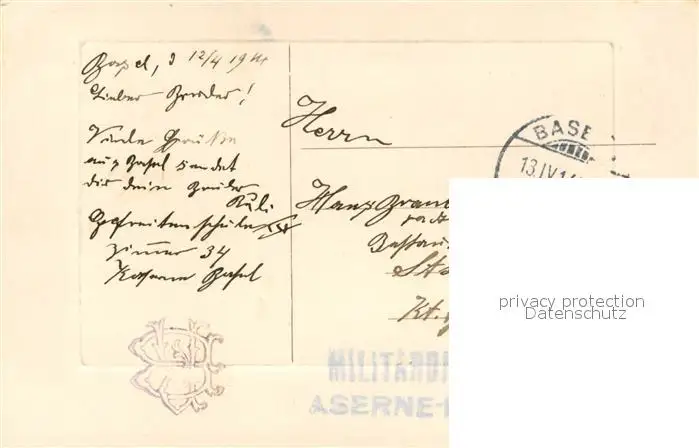 Basel, d 12/4 1914
Lieber Bruder!
Viele Grüße
aus Basel sendet
dir dein Bruder
Ruli
Gefreitenschule
Zimmer 34
Kaserne Basel
Herrn
Hans
Kt.
BASE
13.IV.1
MILITÄRD
ASERNE-
privacy protection
Datenschutz